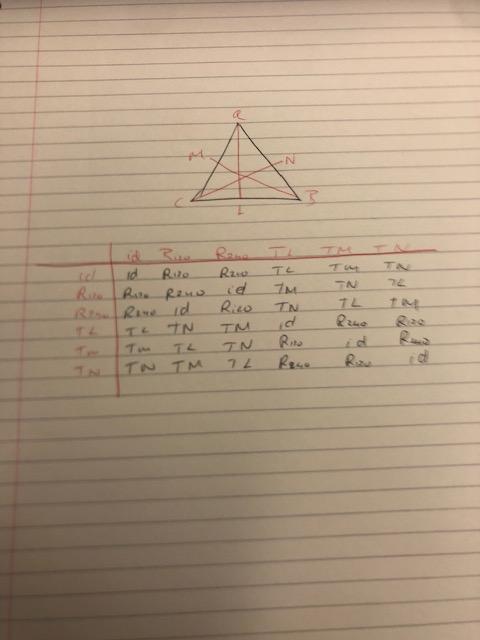 a
M N
C B
L
id R120 R240 TL TM TN
id id R120 R240 TL TM TN
R120 R120 R240 id TM TN TL
R240 R240 id R120 TN TL TM
TL TL TN TM id R240 R120
Tm Tm TL TN R120 id R240
TN TN TM TL R240 R120 id